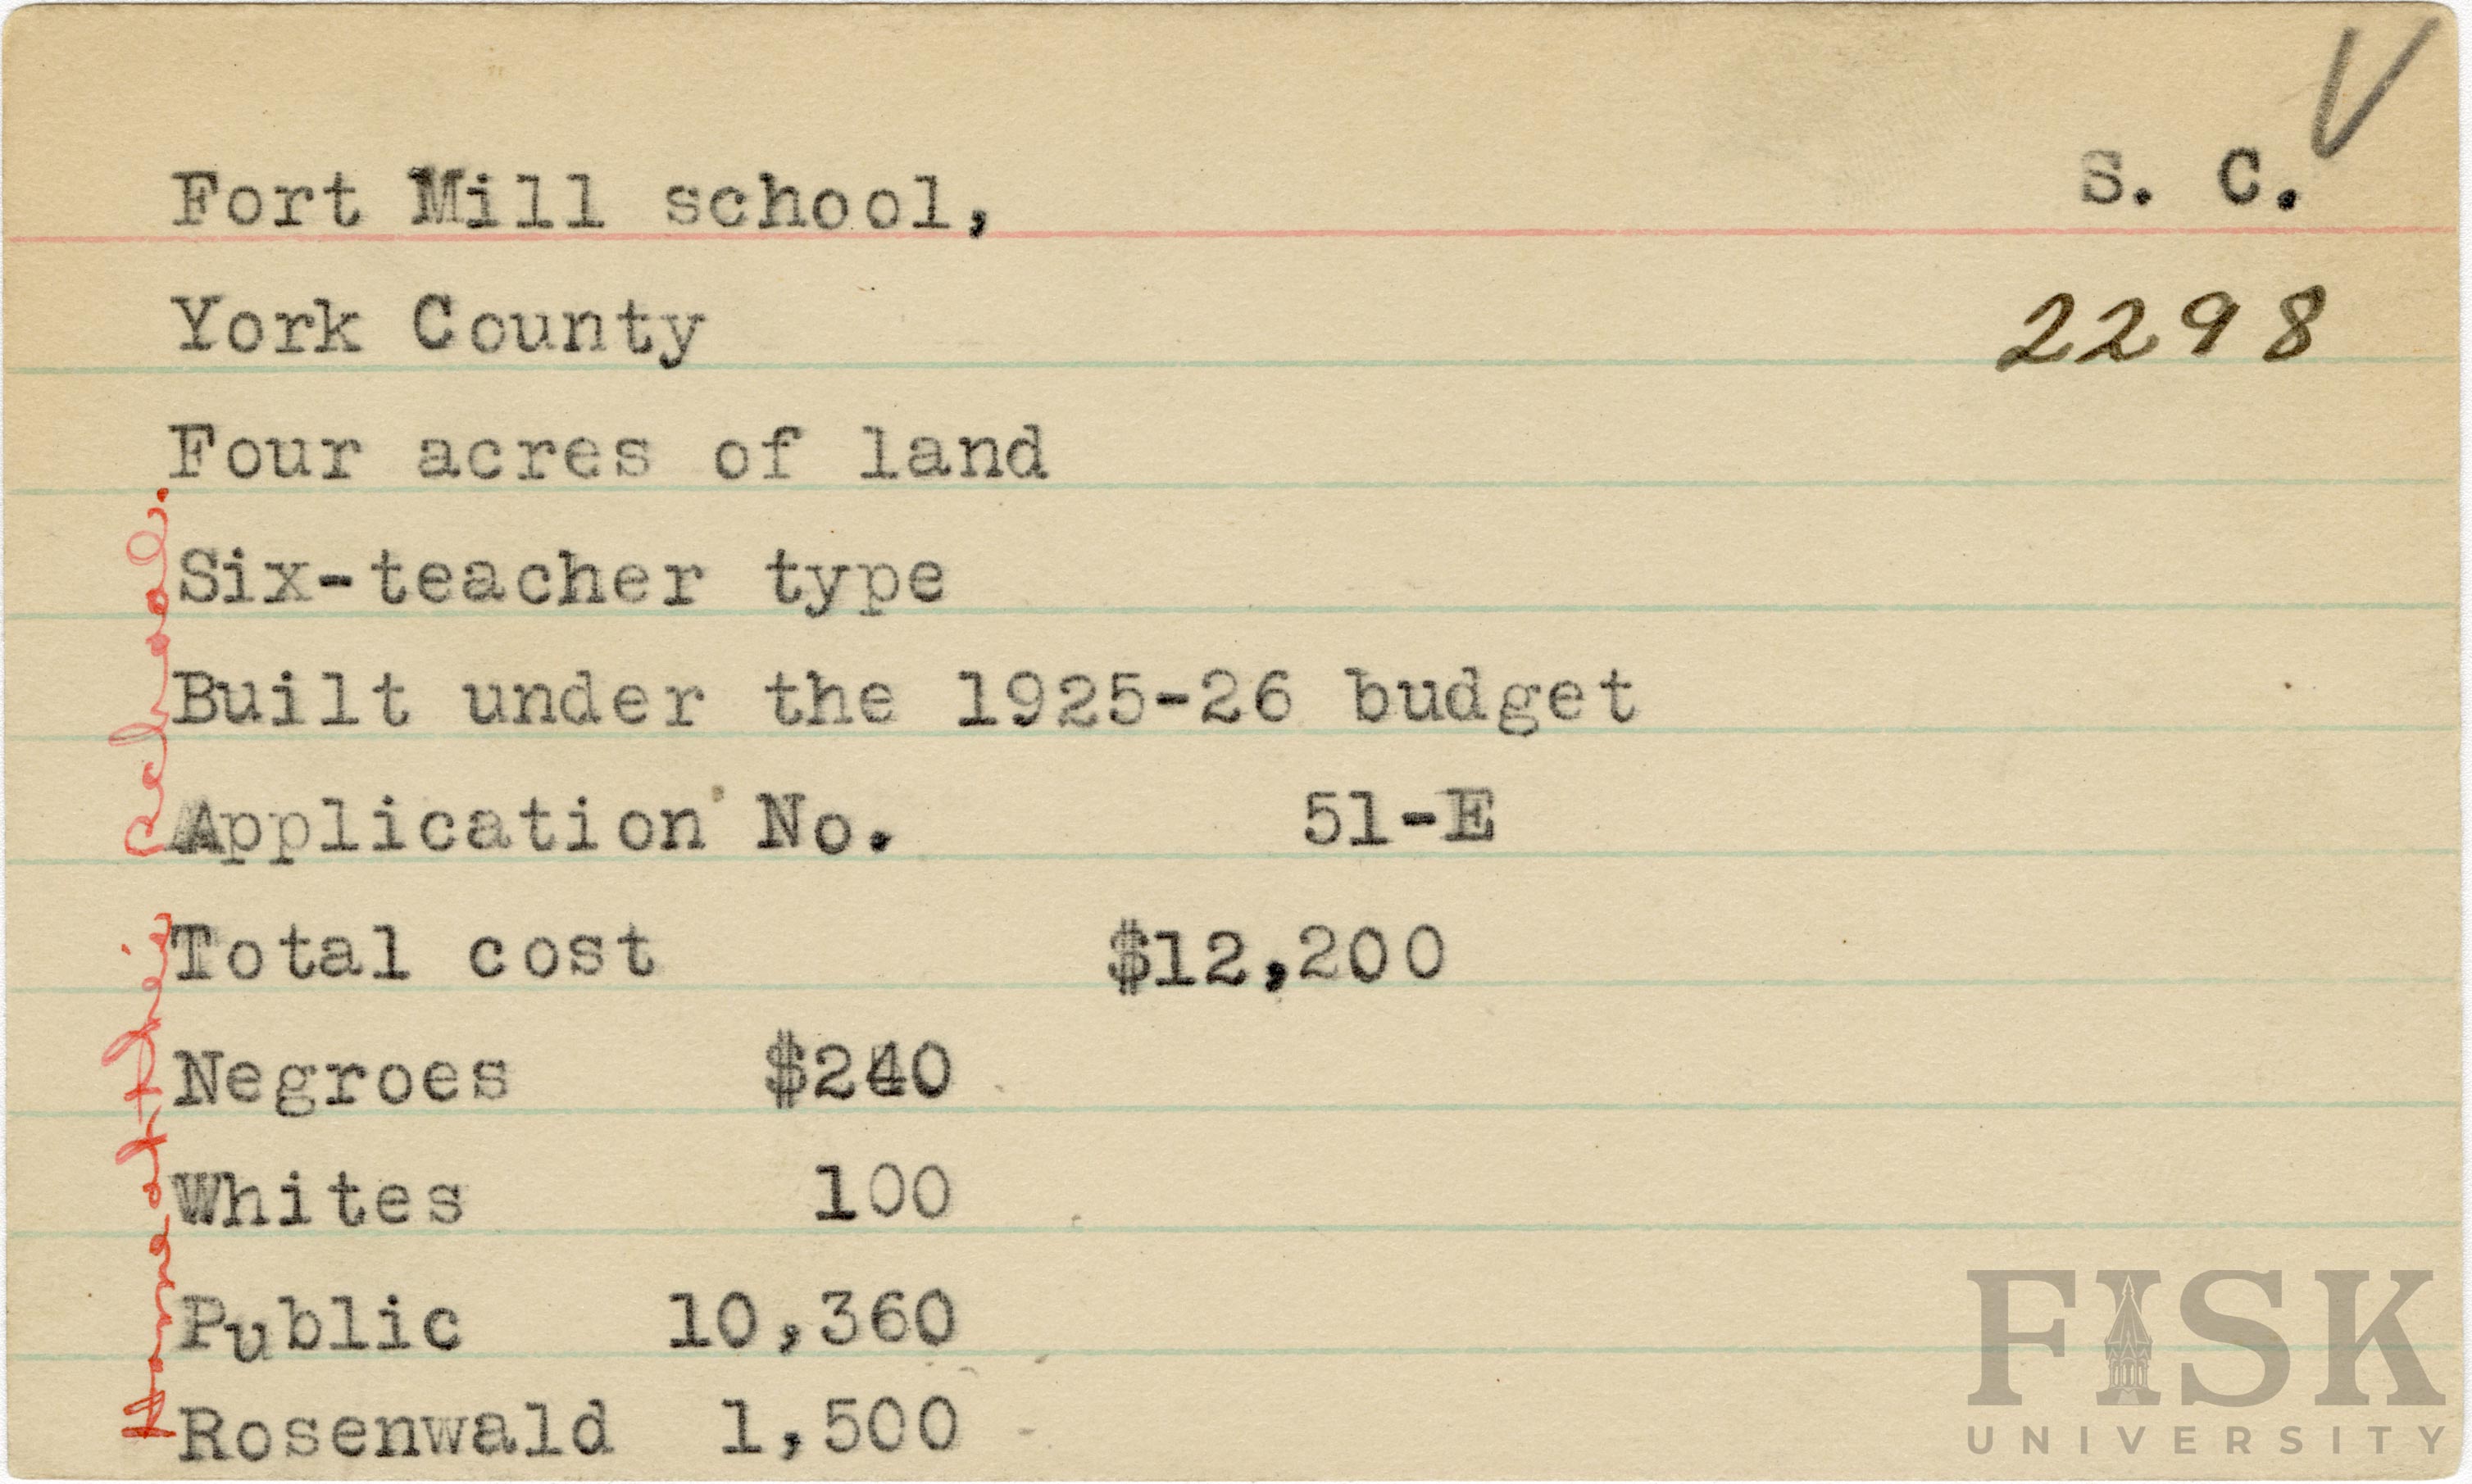 V
Fort Mill school, S. C.
York County 2298
Four acres of land
Six-teacher type
Built under the 1925-26 budget
Application No. 51-E
Total cost $12,200
Negroes $240
Whites 100
Public 10,360
Rosenwald 1,500
Home at this school.
FISK
UNIVERSITY